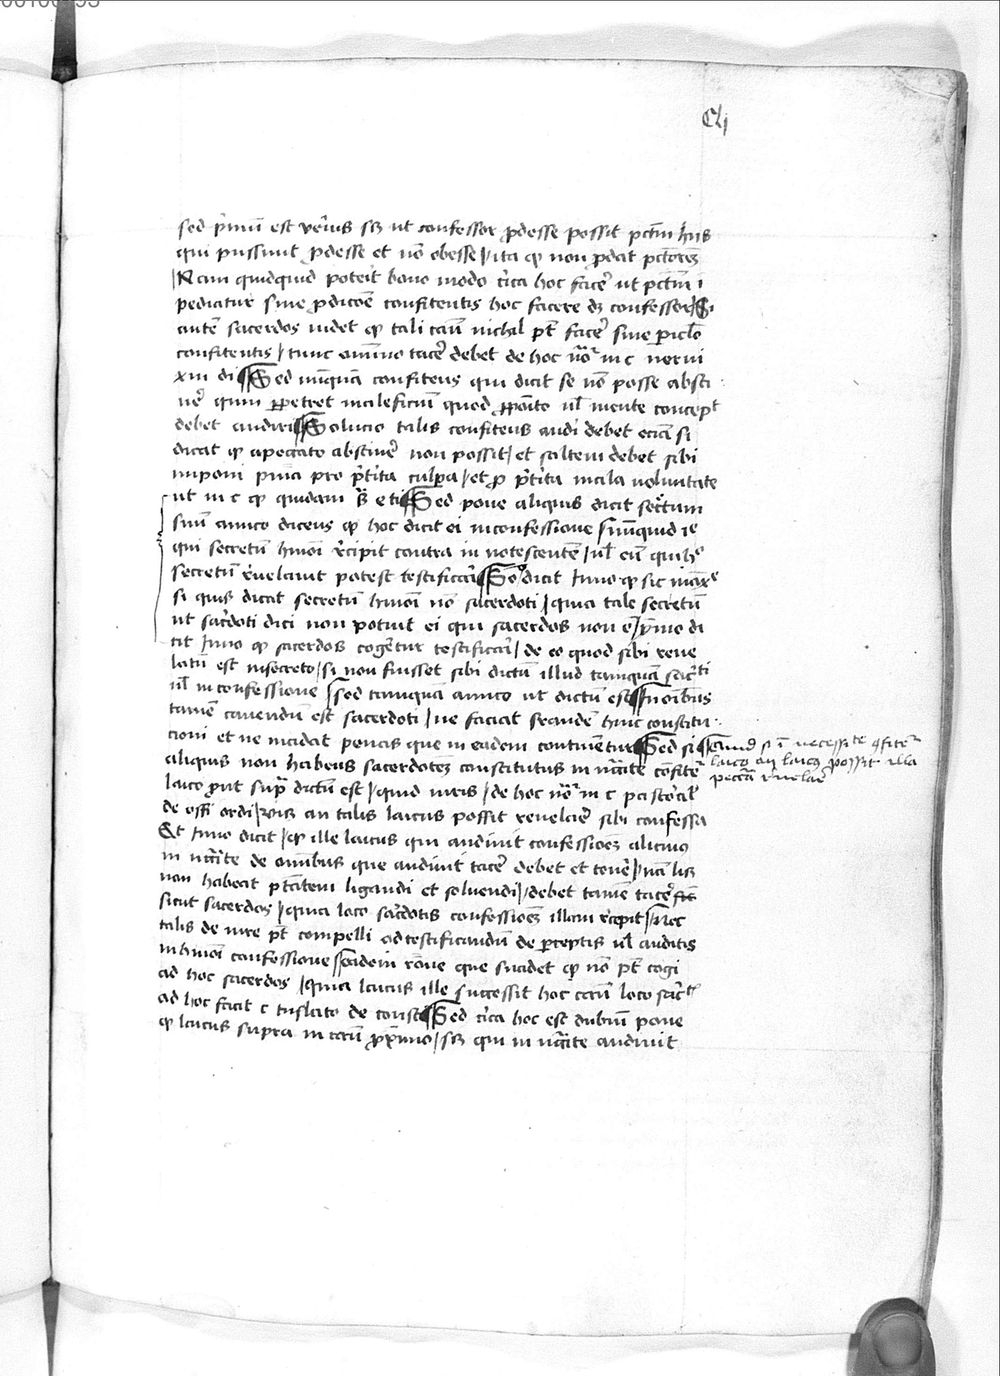 Clj
sed p̄mū est veri9 sz ut confessor ꝓdesse possit pctm hns
qui possunt ꝓdesse et nō obesse / ita ꝙ non ꝓdat
Nam quidquid poterit bono modo c̄ca hoc fac̄e ut pctm i
pediatur sine ꝓdicōe confitentis hoc facere dz confessor Si
autē sacerdos videt ꝙ tali cāu nichil pt̄ fac̄e sine ꝑiclo
confitentis / tunc omīno tac̄e debet de hoc in c nervi
xiii di Sed nūquā confitens qui dicit se nō posse absti
nē quin ꝑpetret maleficiū quod mente concept
debet audiri Solucio talis confitens audi debet eciā si
dicat ꝙ apeccato abstinē non possit / et saltem debet sibi
imponi pnīa pro p̄tita culpa / et ꝓ p̄tita mala voluntate
ut in c ꝙ quidam Sed pone aliquis dicit sectum
suū amico dicens ꝙ hoc dicit ei inconfessione / nūquid is
qui secretū hmōi r̄cipit contra in notescentē / ul eū qui
secretū revelavit potest testificari dicit Inno ꝙ sic maxe
si quis dicat secretū hmōi nō sacerdoti / quia tale secretū
ut sacdoti dici non potuit ei qui sacerdos non ē / ymo di
cit Inno ꝙ sacerdos cogetur testificari / de eo quod sibi reve
latū est insecreto / si non fuisset sibi dictū illud tamquā sacti
ul in confessione / sed tamquā amico ut dictū est In oibus
tamē cavendū est sacerdoti / ne faciat fraudē huic constitu
cioni et ne incidat penas que in eadem continentur Sed si
aliquis non habens sacerdotem constitutus in ncc̄ite confitet
laico ꝓut supra dictū est / quid iuris / de hoc in c pastoral
de offi ordi / an talis laicus possit revelare sibi confessa
Et Inno dicit / ꝙ ille laicus qui audivit confessioez alicuius
in ncc̄ite de omībus que audivit tac̄e debet et tenē / nā licz
non habeat ptātem ligandi et solvendi / debet tamē tac̄e
sicut sacerdos / quia loco sacdotis confessioez illam r̄cepit / Nec
talis de iure pt̄ compelli ad testificandū de ꝑceptis ul auditis
in hmōi confessione / eadem rōne que suadet ꝙ nō pt̄ cogi
ad hoc sacerdos / quia laicus ille successit hoc cāu loco sacti
ad hoc facit c tuslato de const Sed c̄ca hoc est dubiū pone
ꝙ laicus supra in cāu ꝓximo / sz qui in ncc̄ite audivit
Quid si ī necessite ꝯfitet̄
laico an laicus possit illa
pecca r̄velare